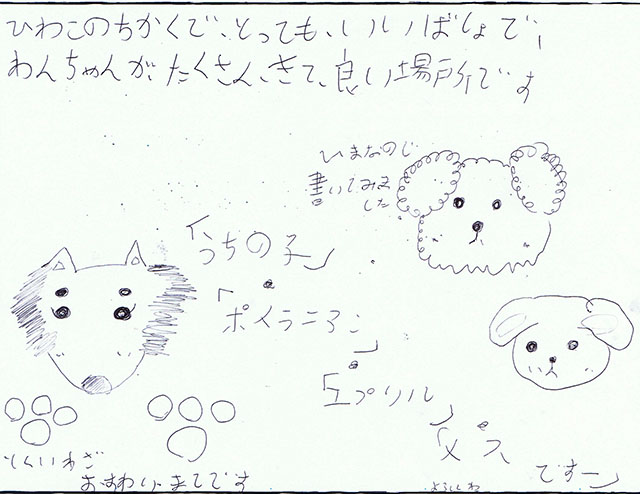 びわこのちかくで、とっても、いいばしょで、
わんちゃんが、たくさん、きて、良い場所です
ひまなので
書いてみま
した
「うちの子」
「ポメラニアン」
「エプリル」
「メス
ですー」
とくいわざ
おすわり、まてです
よろしくね